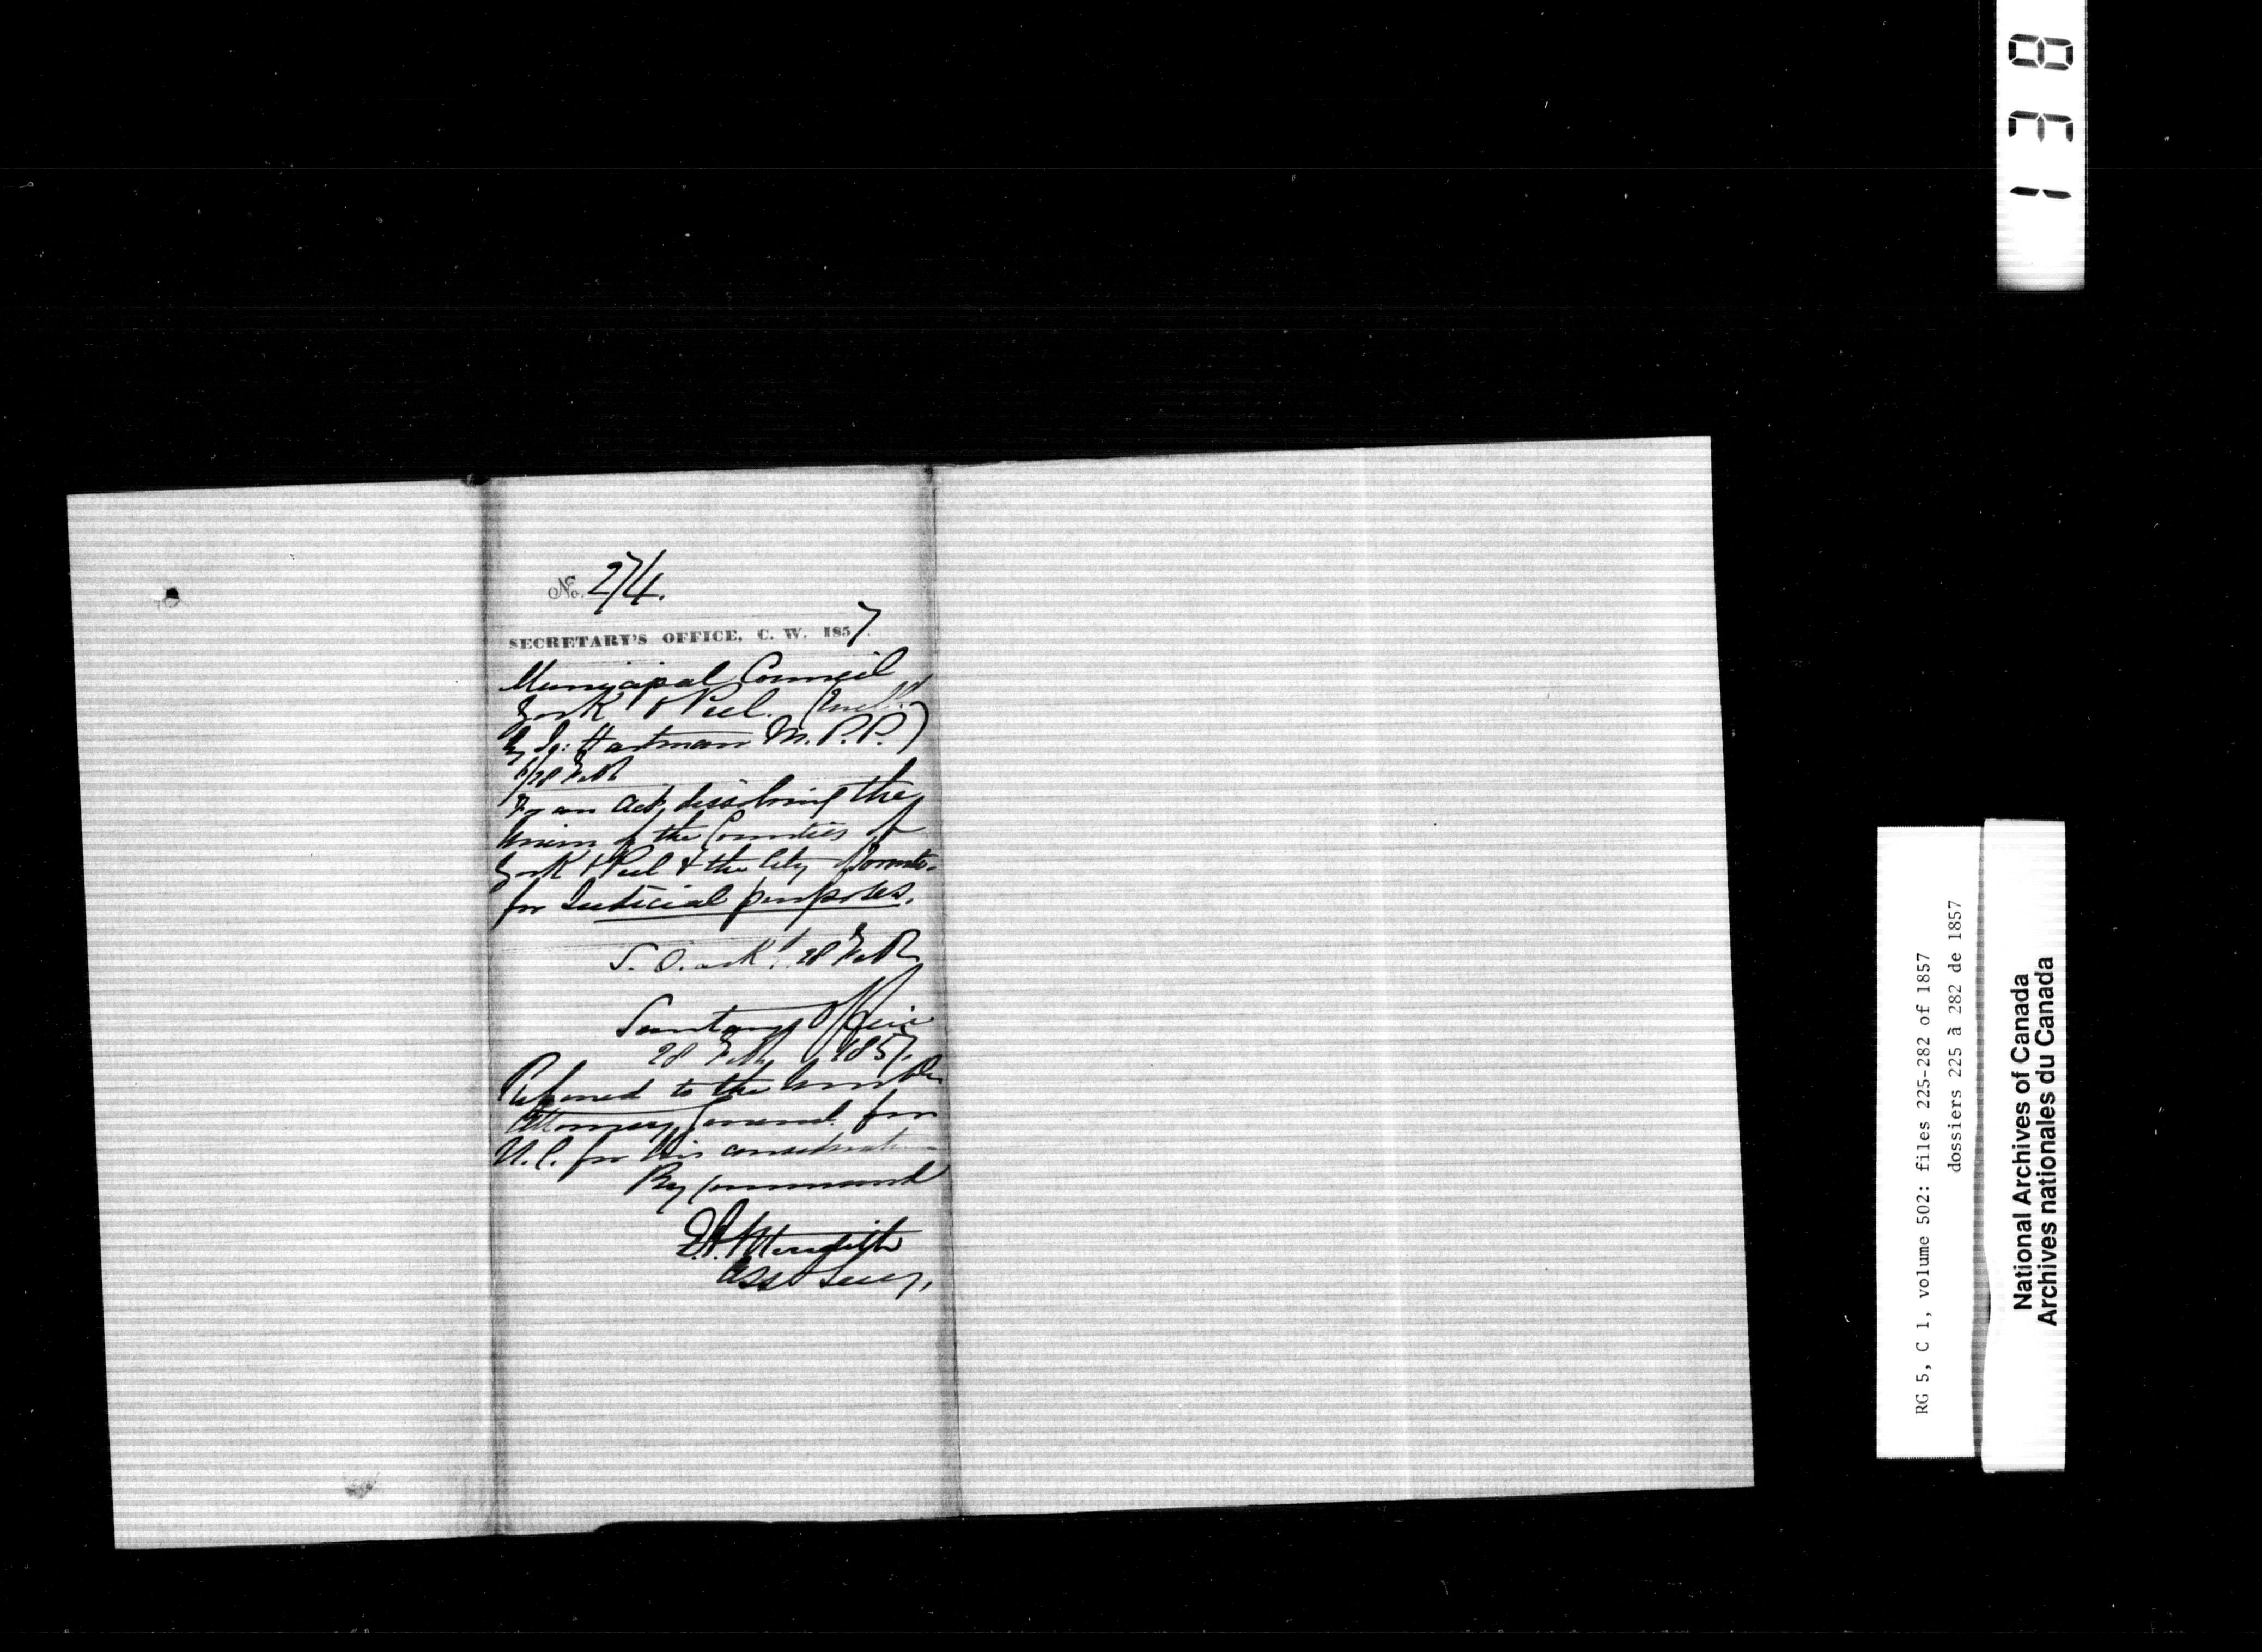 138
No. 274.
SECRETARY'S OFFICE, C. W. 1857.
Municipal Council
York & Peel. (Encl.d
by Jos: Hartman M.P.P.)
28 Feb
For an Act, dissolving the
Union of the Counties of
York & Peel & the City of Toronto
for Judicial purposes.
S. O. ack.d 28 Feb
Secretary's Office
28 Feb 1857.
Referred to the Honble
Attorney General for
U.C. for his consideration
By Command
E.A. Meredith
Asst Secy,
RG 5, C 1, volume 502: files 225-282 of 1857
dossiers 225 à 282 de 1857
National Archives of Canada
Archives nationales du Canada